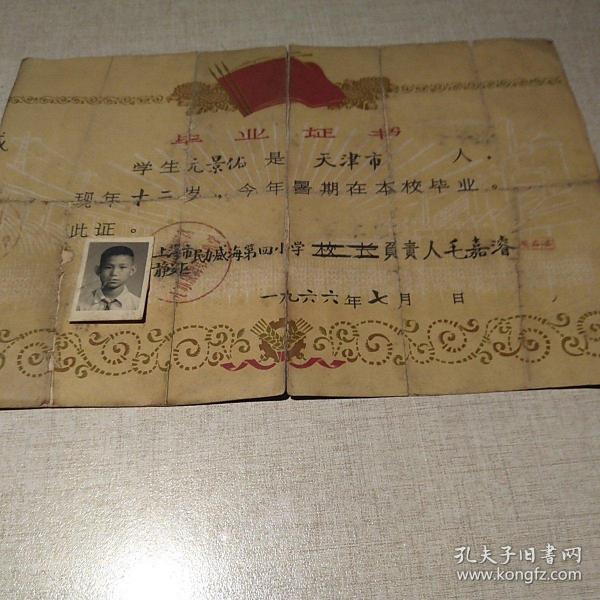 毕业证书
学生元景佑是天津市人，
现年十二岁。今年暑期在本校毕业。
此证。
上海市静安区民办威海第四小学校长負責人毛嘉濬
一九六六年七月 日
孔夫子旧书网
www.kongfz.com